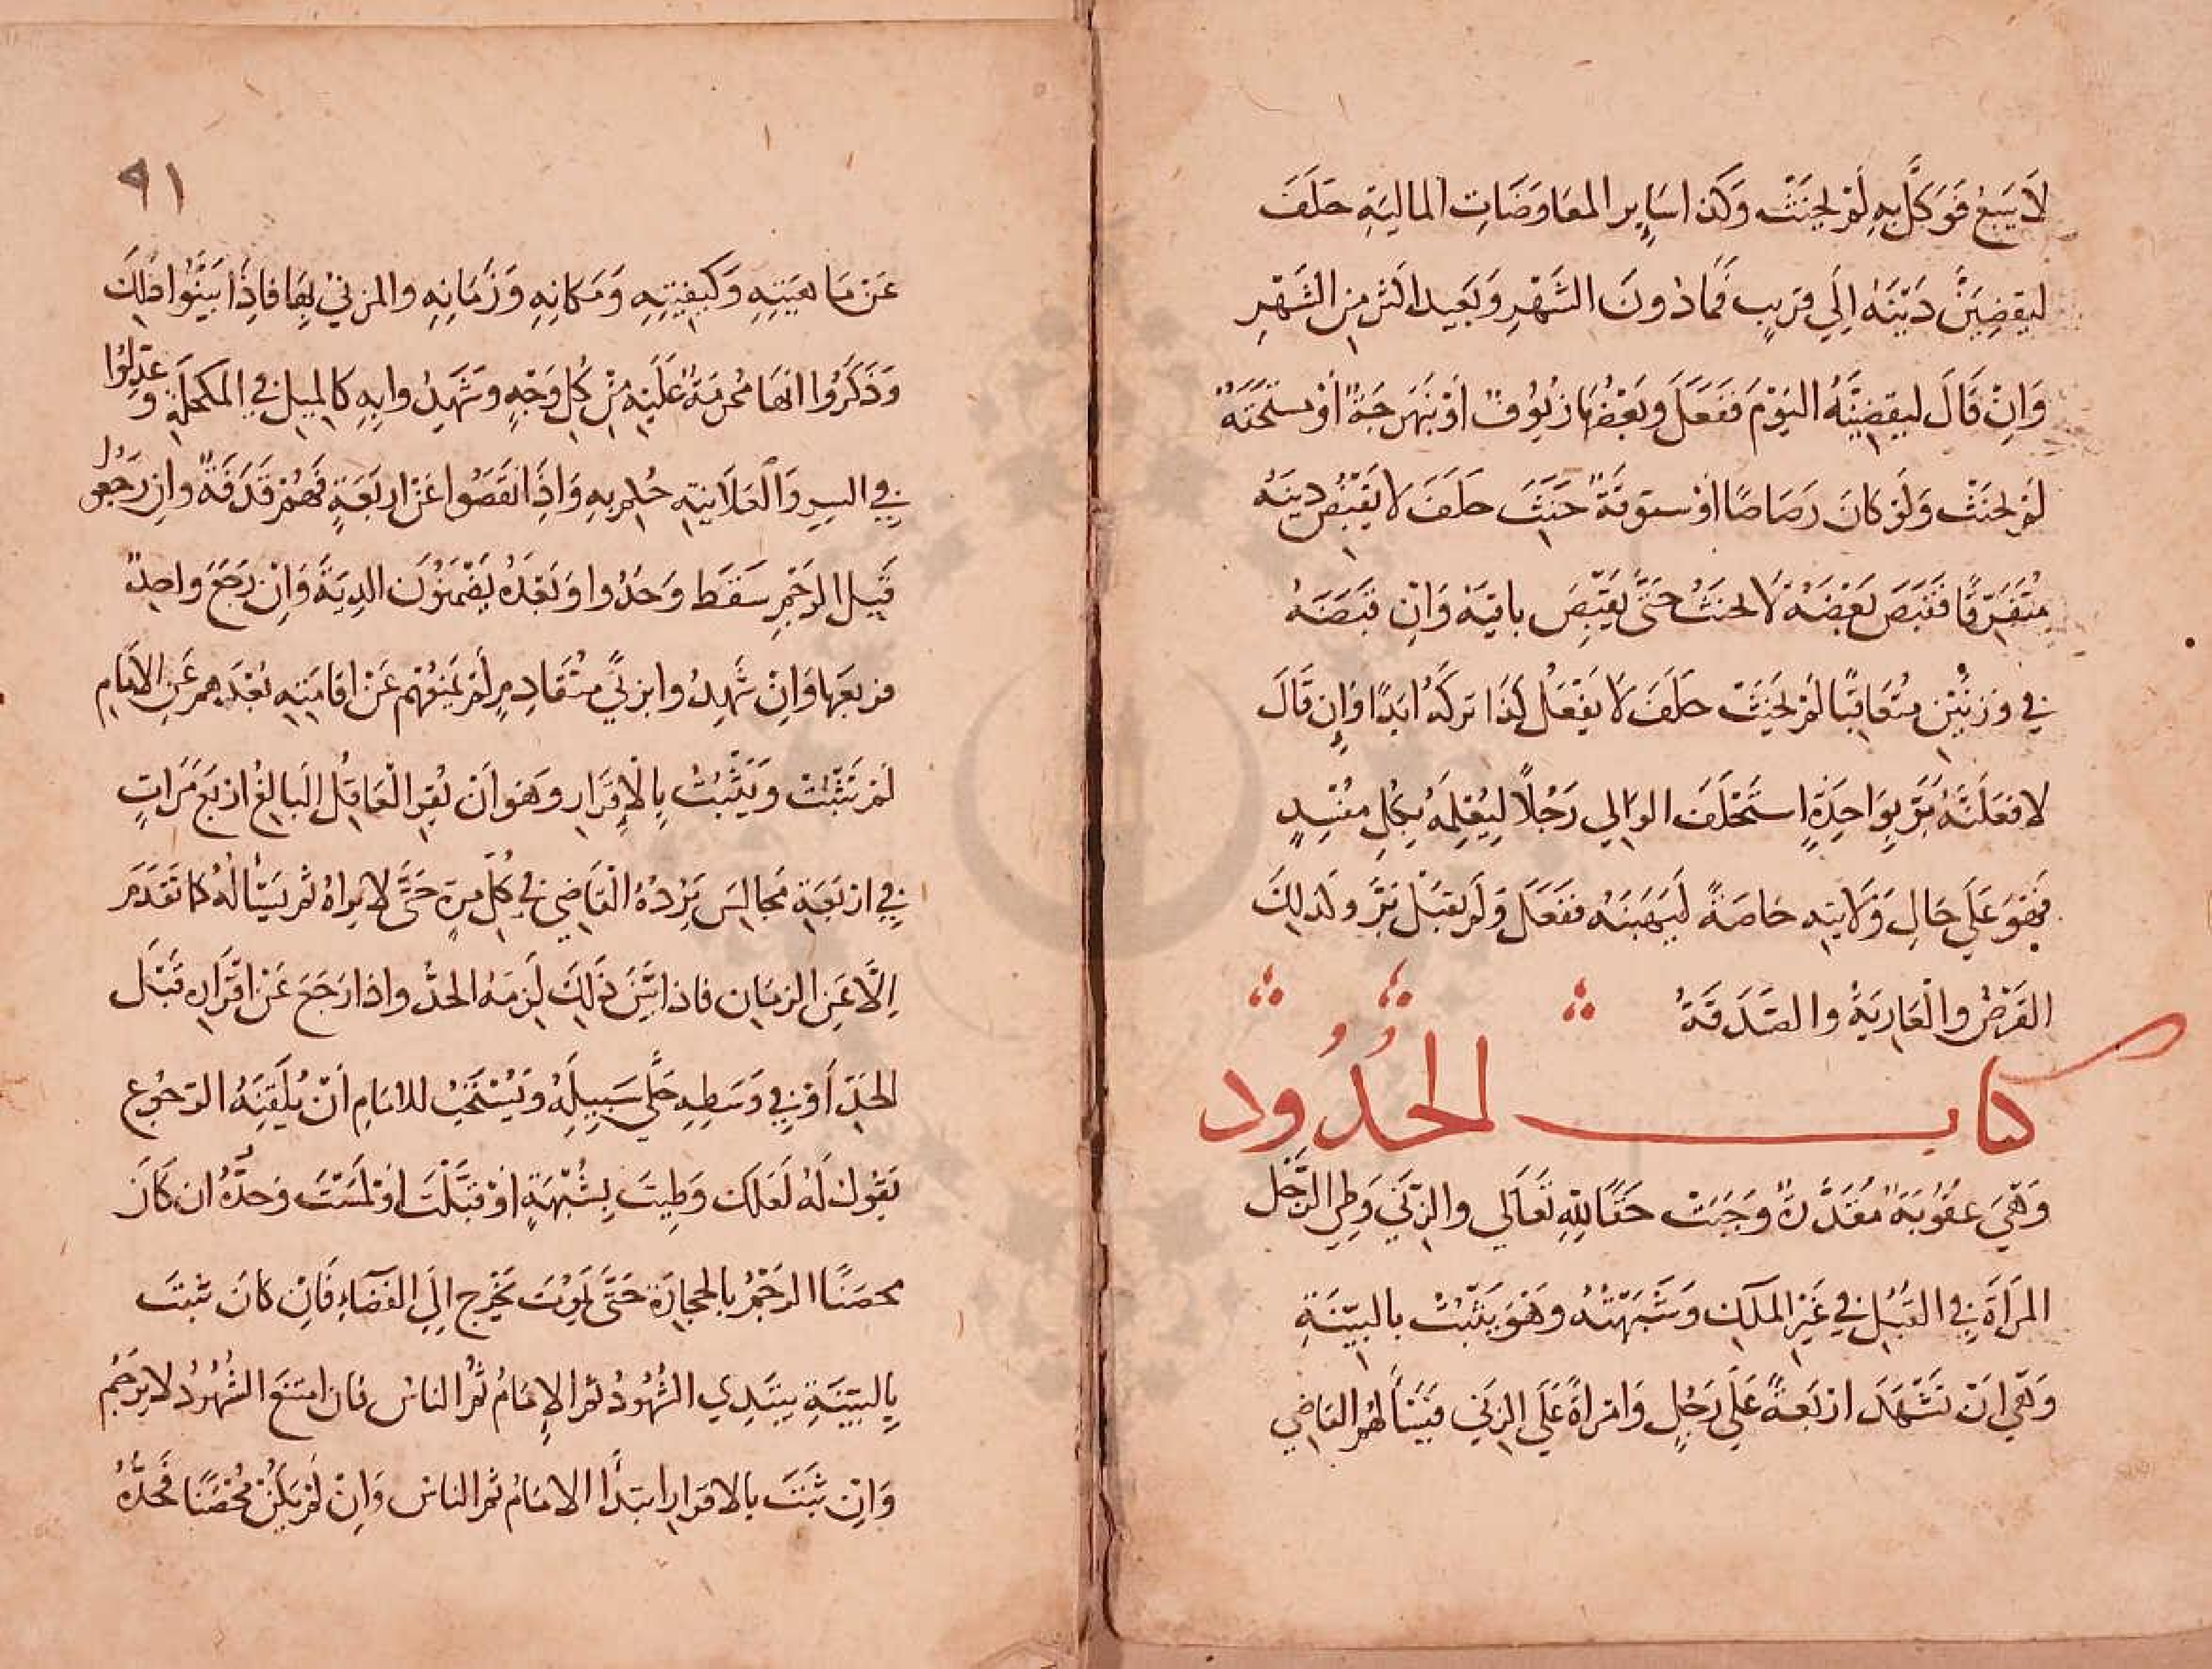 لَا يَبيعُ فَوَكَّلَ بِهِ لَمْ يحنَثْ وَكَذا سَايِر المعَاوَضَاتِ المالِيَةِ حَلَفَ
ليقضِيَنَّ دَيْنَهُ إِلَي قَريبٍ فَمَا دُونَ الشَهْرِ وَبَعيد اكثر مِن الشَهْرِ
وَاِنْ قَالَ ليقضِيَنَّهُ اليَوْمَ فَفَعَلَ وَبَعْضُهَا زيُوفٌ اَوْ نَبَهرَجَةٌ اَوْ مستَحَقَةٌ
لَمْ يحنَثْ وَلَوْ كَانَ رَصَاصًا اَوْ ستوقَةً حَنِثَ حلَفَ لا يَقْبِضُ دينَهُ
متَفَرِّقًا فَقَبَضَ بَعْضَهُ لَا يحنَثُ حَتَّى يَقْبِضَ باقيَهُ وَاِنْ قبَضَهُ
في وَزنَيْنِ متَعَاقِبًا لَمْ يَحنَثْ حَلَفَ لَا يَفْعَلْ كَذَا تركَهُ ابَدًا وَاِن قَالَ
لافعَلَنَّهُ بَرَّ بِوَاحِدَةٍ استَحْلَفَ الوَالِي رَجُلًا لِيُعْلِمَهُ بِكُلِ مفْسِدٍ
فَهُوَ عَلَي حَالِ وَلَايتِهِ خاصَةً لَيَهَبَنهُ فَفَعَلَ وَلَم يَقبَلْ بَرَّ وكَذلِكَ
القَرْضُ والْعَارِيَةُ والصَدَقَةُ
كتاب الحُدُود
وَهْيَ عقُوبَةٌ مُقَدَّرَةٌ وَجَبَتْ حَقًا لِلّهِ تَعَالَي والزِنَي وَطئ الرَّجُل
المَرَاَةَ فِي القُبُلِ فِي غَيْرِ المَلكِ وَشَبَهَتُهُ وهْوَ يَثْبُتُ بالبَيِّنَةِ
وَهْيَ اَنْ تَشْهَدَ ارْبَعَةً عَلَي رَجُلٍ وَامْرأَةً عَلَي الزِنَي فيَسْأَلهُم القاضِي
٩١
عَنْ مَا هيَتِهِ وَكَيفِيَتِهِ وَمَكانِهِ وَزَمَانِهِ والمزنيُ بِهَا فاذَا بَيَّنُوا ذَلِكَ
وَذَكَرُوا انَهَا مُحَرمَةٌ عَلَيْهِ مِنْ كُلِ وَجْهٍ وشَهِدُوا بِهِ كالمِيلِ في المكحُلَةِ وعدِلُوا
فِي السِرِ وَالْعَلَانِيَةِ حُكِم بِهِ وَاِذَا نَقَصُوا عَنْ ارْبَعَةٍ فَهُمْ قَذَفَةٌ وان رَجَعُوا
قَبْلَ الرَجْمِ سَقَطَ وَحُدُوا وَبَعْدَهُ يَضْمَنُوُن الدِيَةَ وَاِنْ رَجَعَ واحِدٌ
فربعَها وَاِنْ شَهِدُوا بزنًي متَقَادِمٍ لَمْ يَمْنَعهُم عَنْ اقامَتِهِ بُعْدَهم عَنِ الامَامِ
لَمْ يَثْبُتْ وَيَثْبُتُ بِالْاِقْرَارِ وَهْوَ اَنْ يُقِرَ الْعَاقِلُ البَالِغُ ارْبَعَ مَرَاتٍ
فِي ارْبَعَةِ مَجالِسَ يَرُدُهُ الْقَاضِي في كُلِّ مرَةٍ حَتَّى لا يَراهُ ثم يَسْألهُ كما تَقَدَمَ
اِلَّا عَنِ الزمَانِ فاذا بَيَّنَ ذَلِكَ لَزِمَهُ الحدُّ واذا رَجَعَ عَنْ اقْرَارِهِ قَبْلَ
الحَدِّ أَوْ فِي وَسَطِهِ خَلَّي سَبِيلَهُ وَيُسْتَحَبُ للامَامِ أَنْ يُلَقِنَهُ الرجُوعَ
يَقُولُ لَهُ لَعَلكَ وَطِيتَ بِشُبْهَةٍ اَوْ قَبَّلْتَ اوْ لَمَسْتَ وَحدُّهُ ان كَانَ
محصَنًا الرَجْمُ بالحجارَةِ حَتَّى يَموُتَ يَخْرج اِلَي الفَضَاءِ فَاِنْ كَانَ ثَبَتَ
بِالبَيِّنَةِ يبتَدِي الشُهُودُ ثم الاِمَامُ ثُمَ الناسُ فان امتنَعَ الشُهُودُ لا يرجَمُ
وَاِنْ ثَبَتَ بالاقرَارِ ابتدَأ الامَامُ ثم الناسُ وَاِنْ لَمْ يَكُنْ مُحْصَنًا فَحَدُّهُ